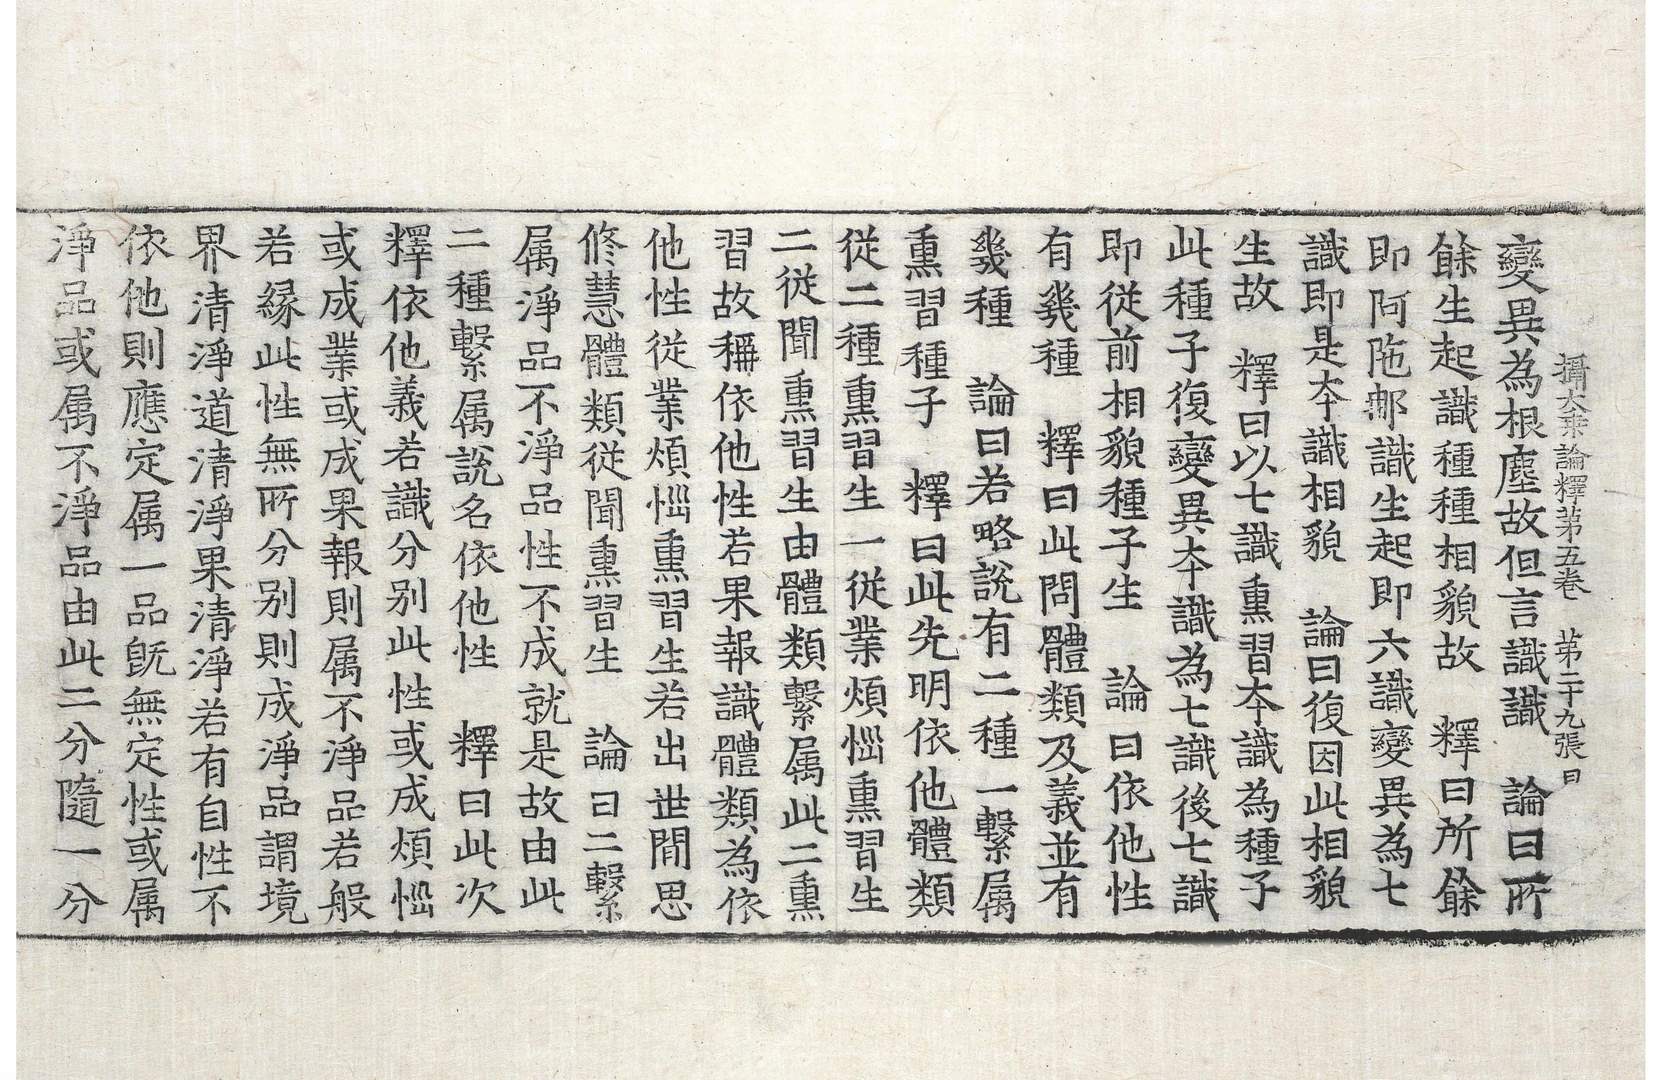 攝大乘論釋第五卷　第二十九張　曰
變異為根塵故但言識識　論曰所
餘生起識種種相貌故　釋曰所餘
即阿陁郍識生起即六識變異為七
識即是夲識相貌　論曰復因此相貌
生故　釋曰以七識熏習夲識為種子
此種子復變異夲識為七識後七識
即從前相貌種子生　論曰依他性
有幾種　釋曰此問體類及義並有
幾種　論曰若略說有二種一繫属
熏習種子　釋曰此先明依他體類
從二種熏習生一從業煩惱熏習生
二從聞熏習生由體類繫属此二熏
習故稱依他性若果報識體類為依
他性從業煩惱熏習生若出世間思
修慧體類從聞熏習生　論曰二繫
属淨品不淨品性不成就是故由此
二種繫属說名依他性　釋曰此次
釋依他義若識分别此性或成煩惱
或成業或成果報則属不淨品若般
若緣此性無所分别則成淨品謂境
界清淨道清淨果清淨若有自性不
依他則應定属一品旣無定性或属
淨品或属不淨品由此二分隨一分